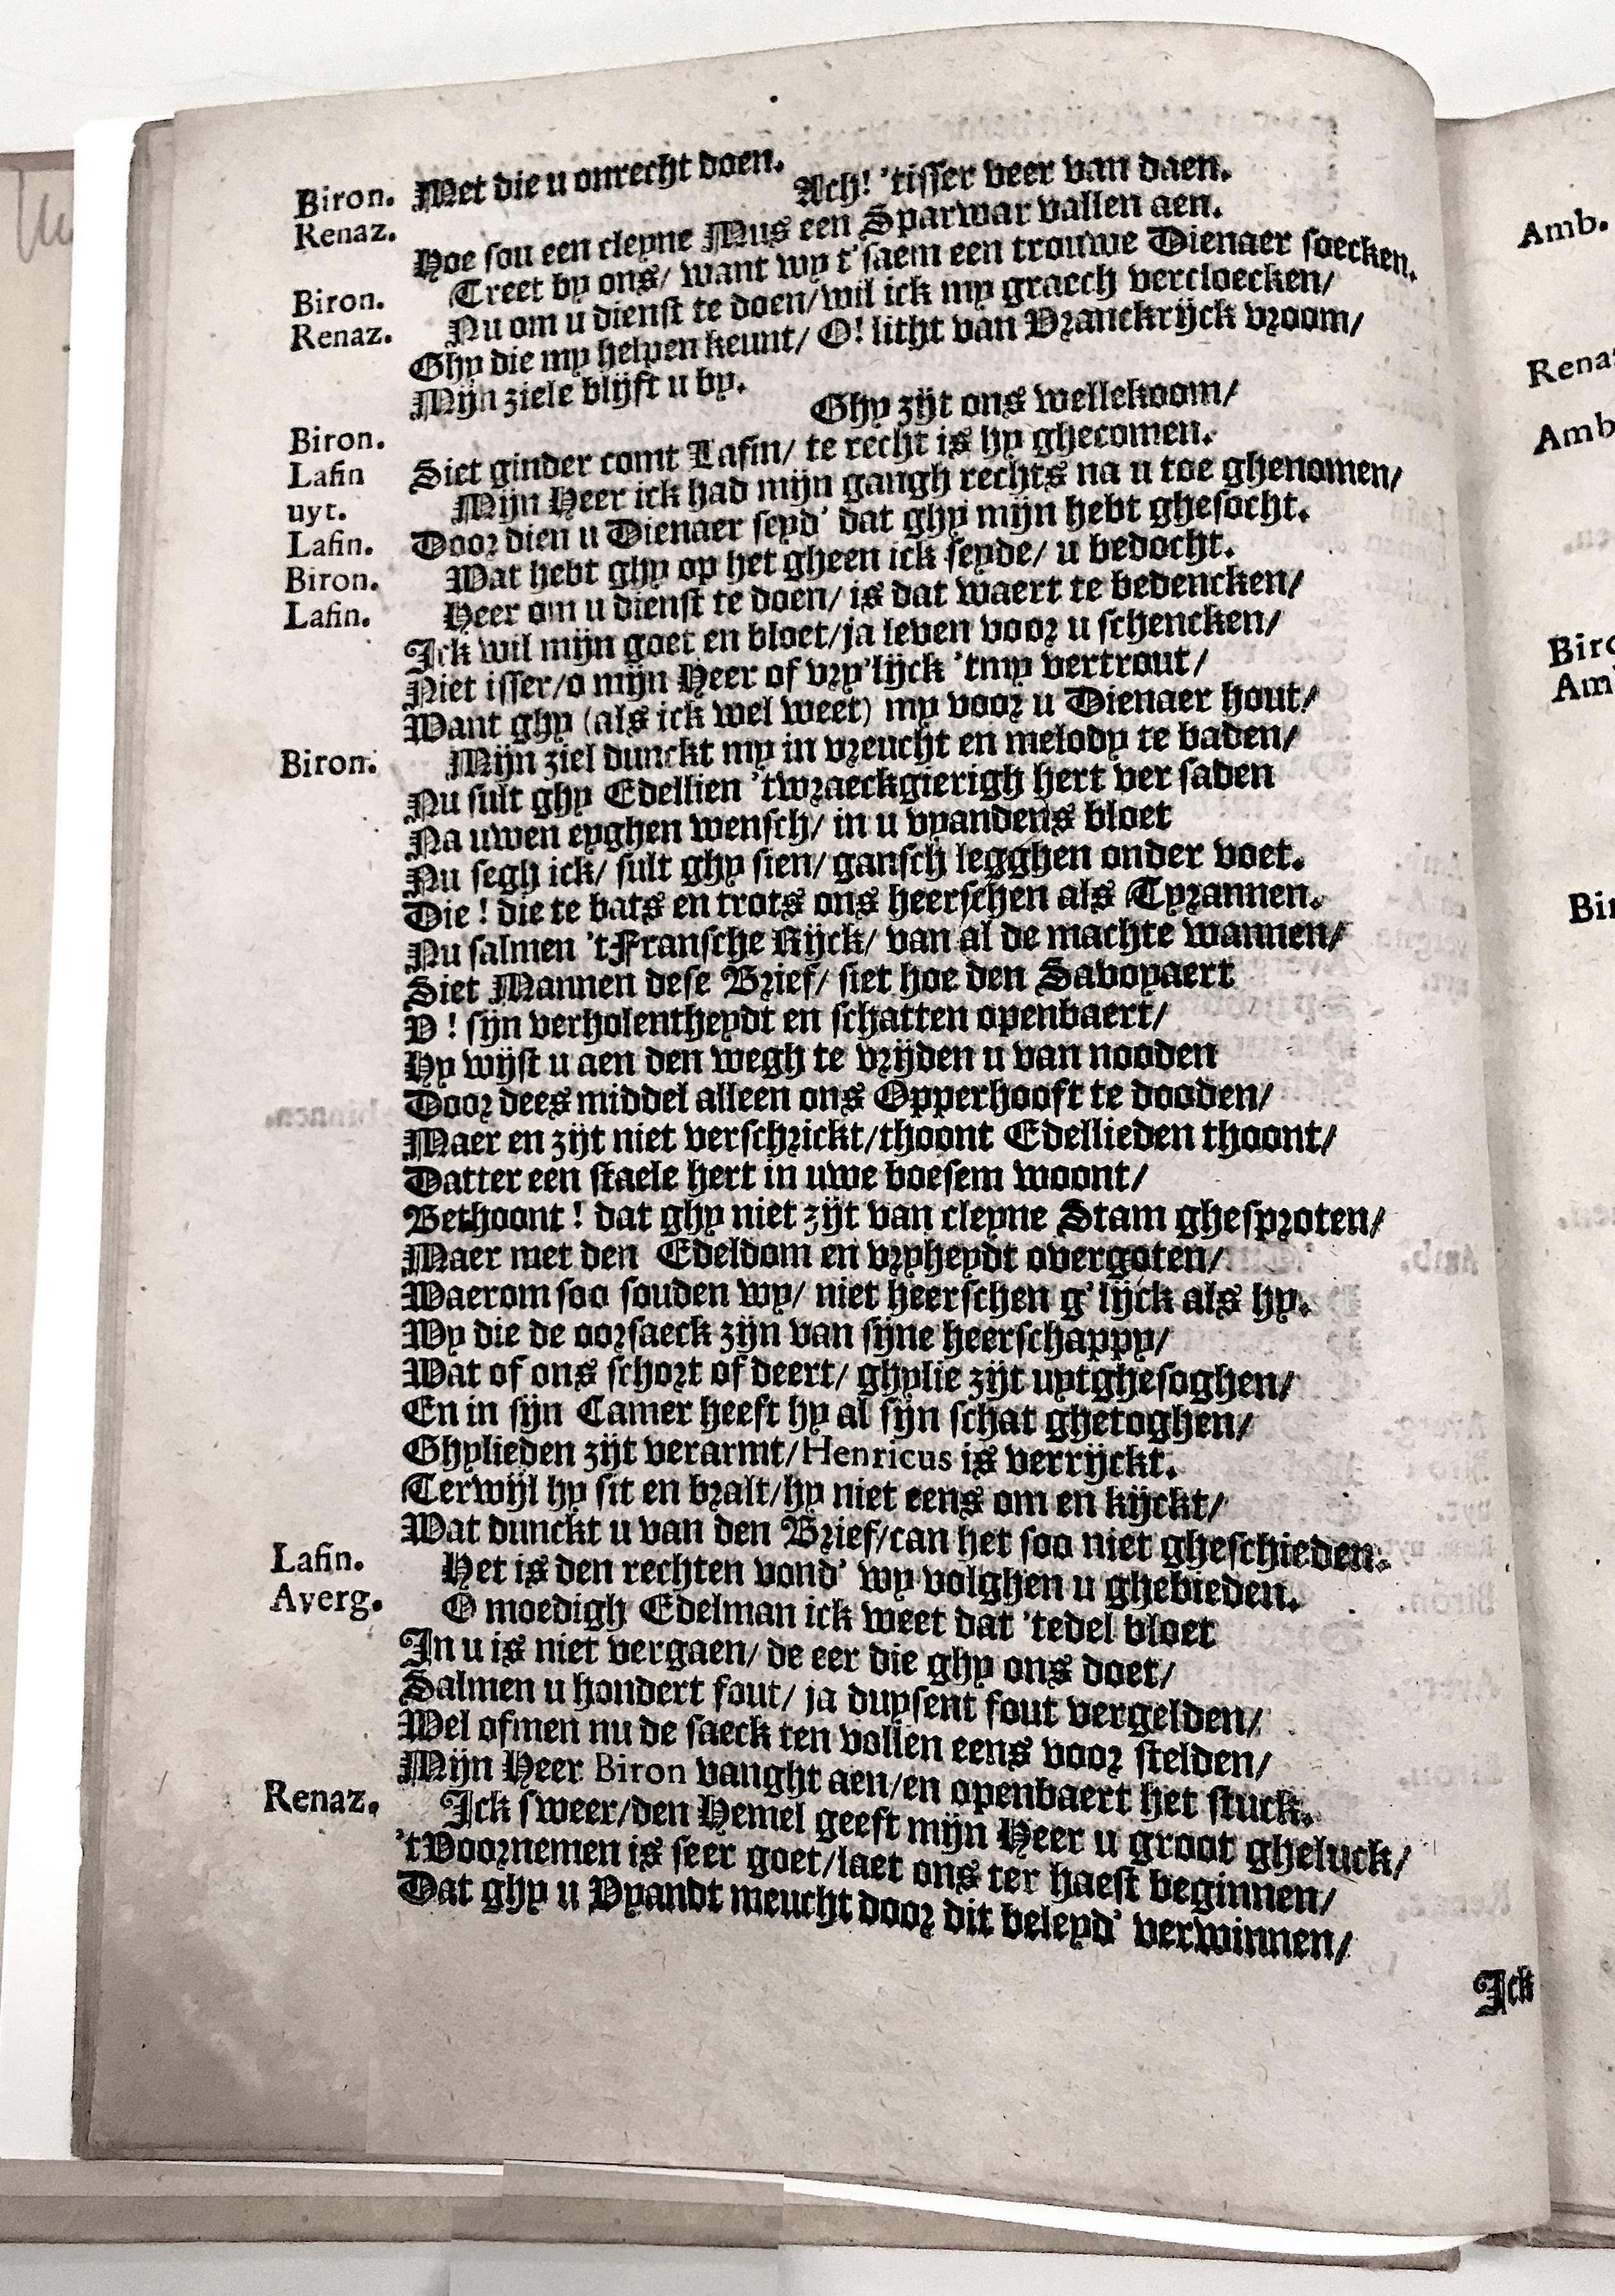 Biron. Met die u onrecht doen.
Renaz. Ach! 'tisser veer van daen.
Hoe sou een cleyne Mus een Sparwar vallen aen.
Biron. Treet by ons/ want wy t'saem een trouwe Dienaer soecken.
Renaz. Nu om u dienst te doen/wil ick my graech vercloecken/
Ghy die my helpen keunt/ O! litht van Vranckrijck vroom/
Mijn ziele blijft u by.
Biron. Ghy zijt ons wellekoom/
Lafin uyt. Siet ginder comt Lafin/ te recht is hy ghecomen.
Lafin. Mijn Heer ick had mijn gangh rechts na u toe ghenomen/
Door dien u Dienaer seyd' dat ghy mijn hebt ghesocht.
Biron. Wat hebt ghy op het gheen ick seyde/ u bedocht.
Lafin. Heer om u dienst te doen/ is dat waert te bedencken/
Ick wil mijn goet en bloet/ja leven voor u schencken/
Niet isser/o mijn Heer of vry'lijck 'tmy vertrout/
Want ghy (als ick wel weet) my voor u Dienaer hout/
Biron. Mijn ziel dunckt my in vreucht en melody te baden/
Nu sult ghy Edellien 'twraeckgierigh hert ver saden
Na uwen eyghen wensch/ in u vyandens bloet
Nu segh ick/ sult ghy sien/ gansch legghen onder voet.
Die ! die te bats en trots ons heerschen als Tyrannen.
Nu salmen 'tFransche Rijck/ van al de machte wannen/
Siet Mannen dese Brief/ siet hoe den Savoyaert
O ! sijn verholentheydt en schatten openbaert/
Hy wijst u aen den wegh te vrijden u van nooden
Door dees middel alleen ons Opperhooft te dooden/
Maer en zijt niet verschrickt/thoont Edellieden thoont/
Datter een staele hert in uwe boesem woont/
Bethoont ! dat ghy niet zijt van cleyne Stam ghesproten/
Maer met den Edeldom en vryheydt overgoten/
Waerom soo souden wy/ niet heerschen g'lijck als hy.
Wy die de oorsaeck zijn van sijne heerschappy/
Wat of ons schort of deert/ ghylie zijt uytghesoghen/
En in sijn Camer heeft hy al sijn schat ghetoghen/
Ghylieden zijt verarmt/Henricus is verrijckt.
Terwijl hy sit en bralt/hy niet eens om en kijckt/
Wat dunckt u van den Brief/can het soo niet gheschieden.
Lafin. Het is den rechten vond' wy volghen u ghebieden.
Averg. O moedigh Edelman ick weet dat 'tedel bloet
In u is niet vergaen/ de eer die ghy ons doet/
Salmen u hondert fout/ ja duysent fout vergelden/
Wel ofmen nu de saeck ten vollen eens voor stelden/
Mijn Heer Biron vanght aen/en openbaert het stuck.
Renaz. Ick sweer/den Hemel geeft mijn Heer u groot gheluck/
'tVoornemen is seer goet/laet ons ter haest beginnen/
Dat ghy u Vyandt meucht door dit beleyd' verwinnen/
Ick
Amb.
Amb
Am